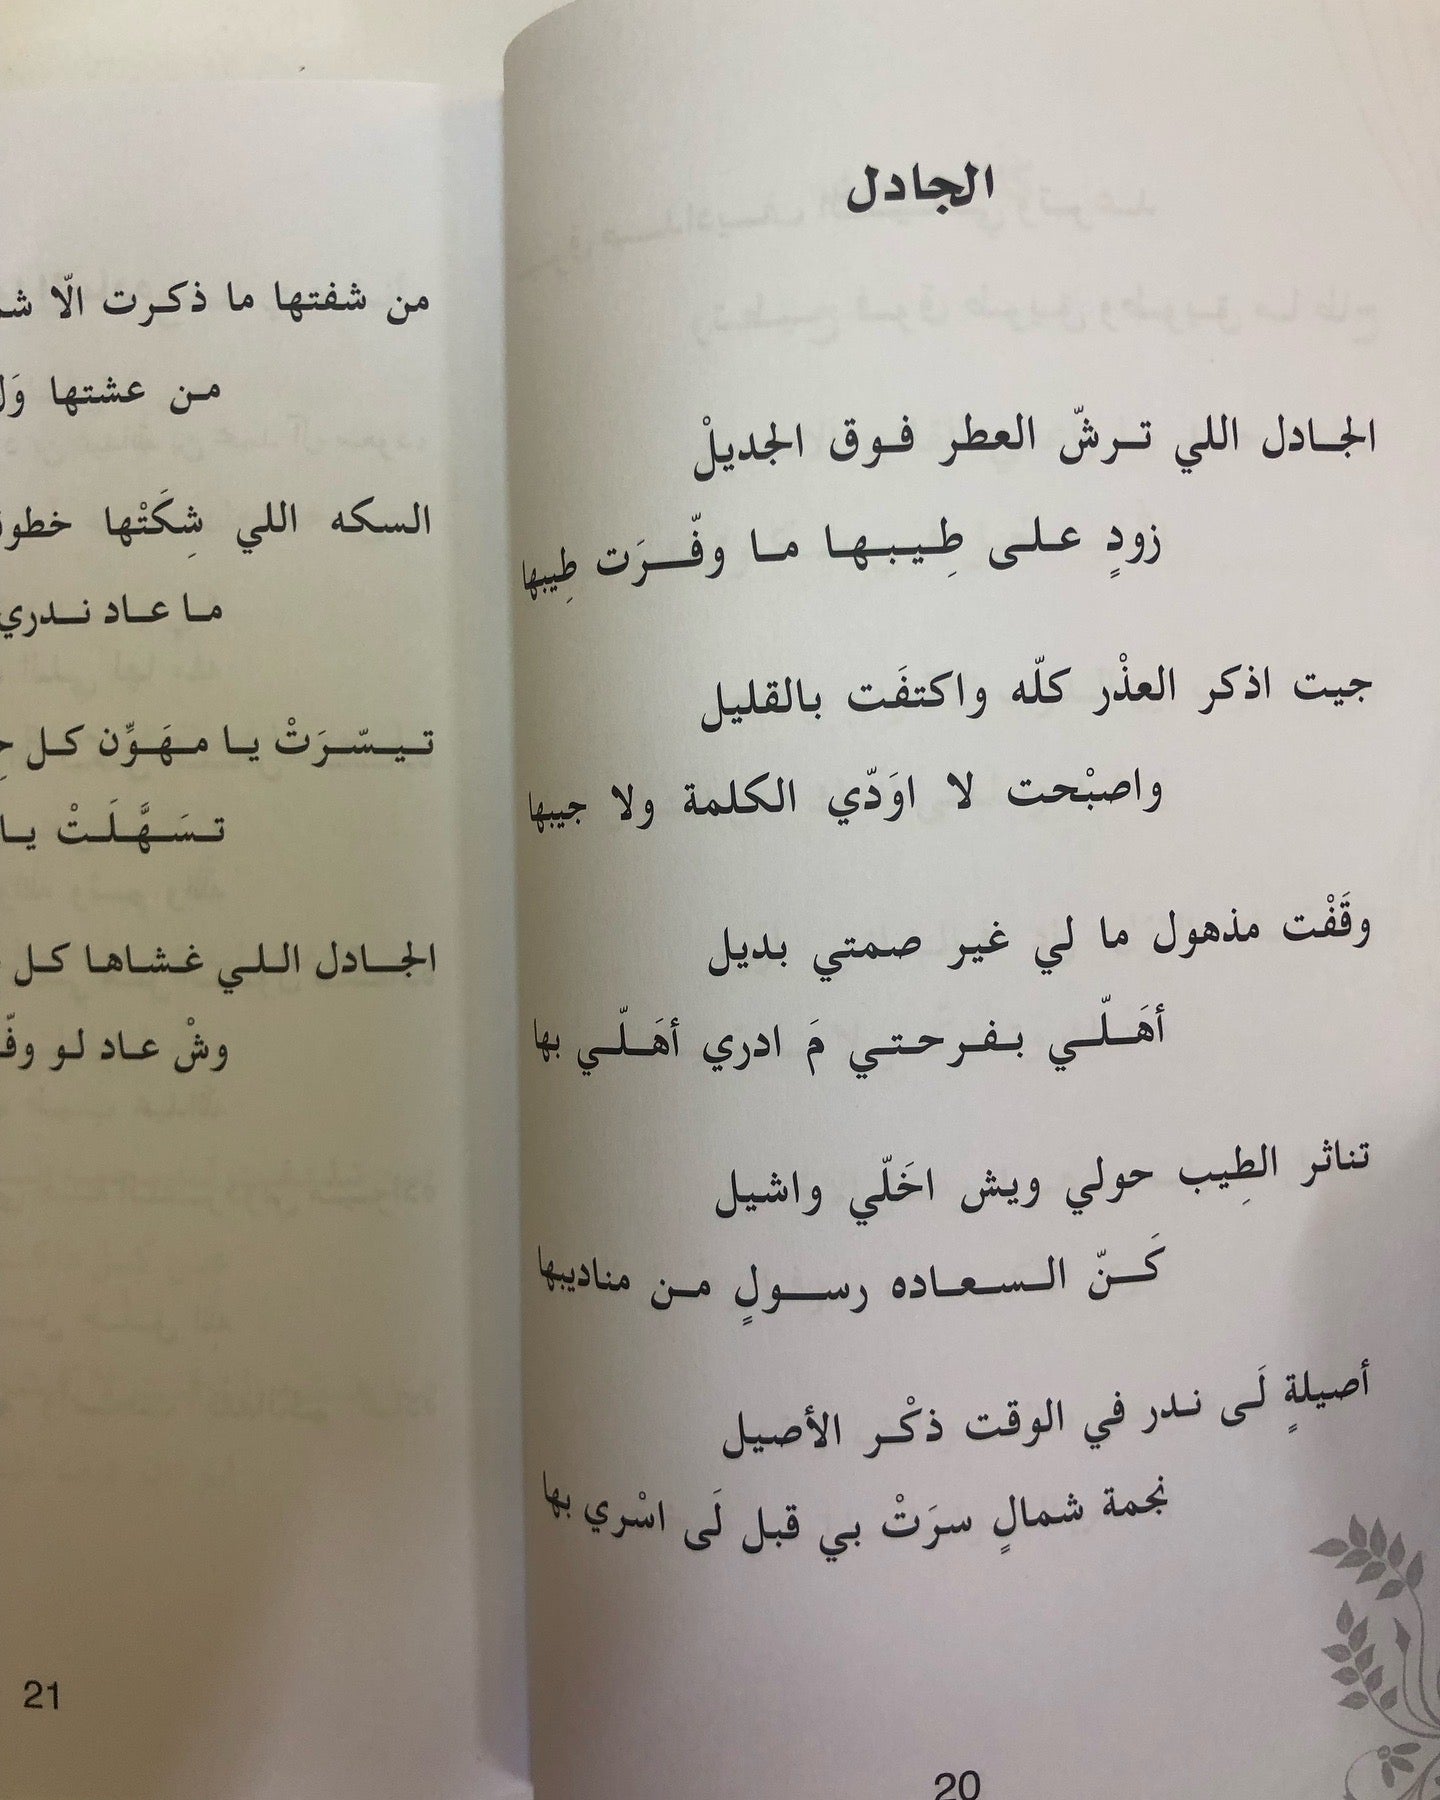 الجادل
الجادل اللي ترشّ العطر فوق الجديلْ
زودٍ على طِيبها ما وفّرَت طِيبها
جيت اذكر العذْر كلّه واكتفَت بالقليل
واصبْحت لا اوَدّي الكلمة ولا جيبها
وقَفْت مذهول ما لي غير صمتي بديل
أهَلّي بفرحتي مَ ادري أهَلّي بها
تناثر الطِيب حولي ويش اخَلّي واشيل
كَنّ السعاده رسولٍ من مناديبها
أصيلةٍ لَى ندر في الوقت ذكْر الأصيل
نجمة شمالٍ سرَتْ بي قبل لَى اسْري بها
20
من شفتها ما ذكرت الّا
من عشتها
السكه اللي شِكَتْها
ما عاد ندري
تيسّرَتْ يا مهَوِّن كل
تسَهَّلَتْ يا
الجادل اللي غشاها كل
وشْ عاد لو
21